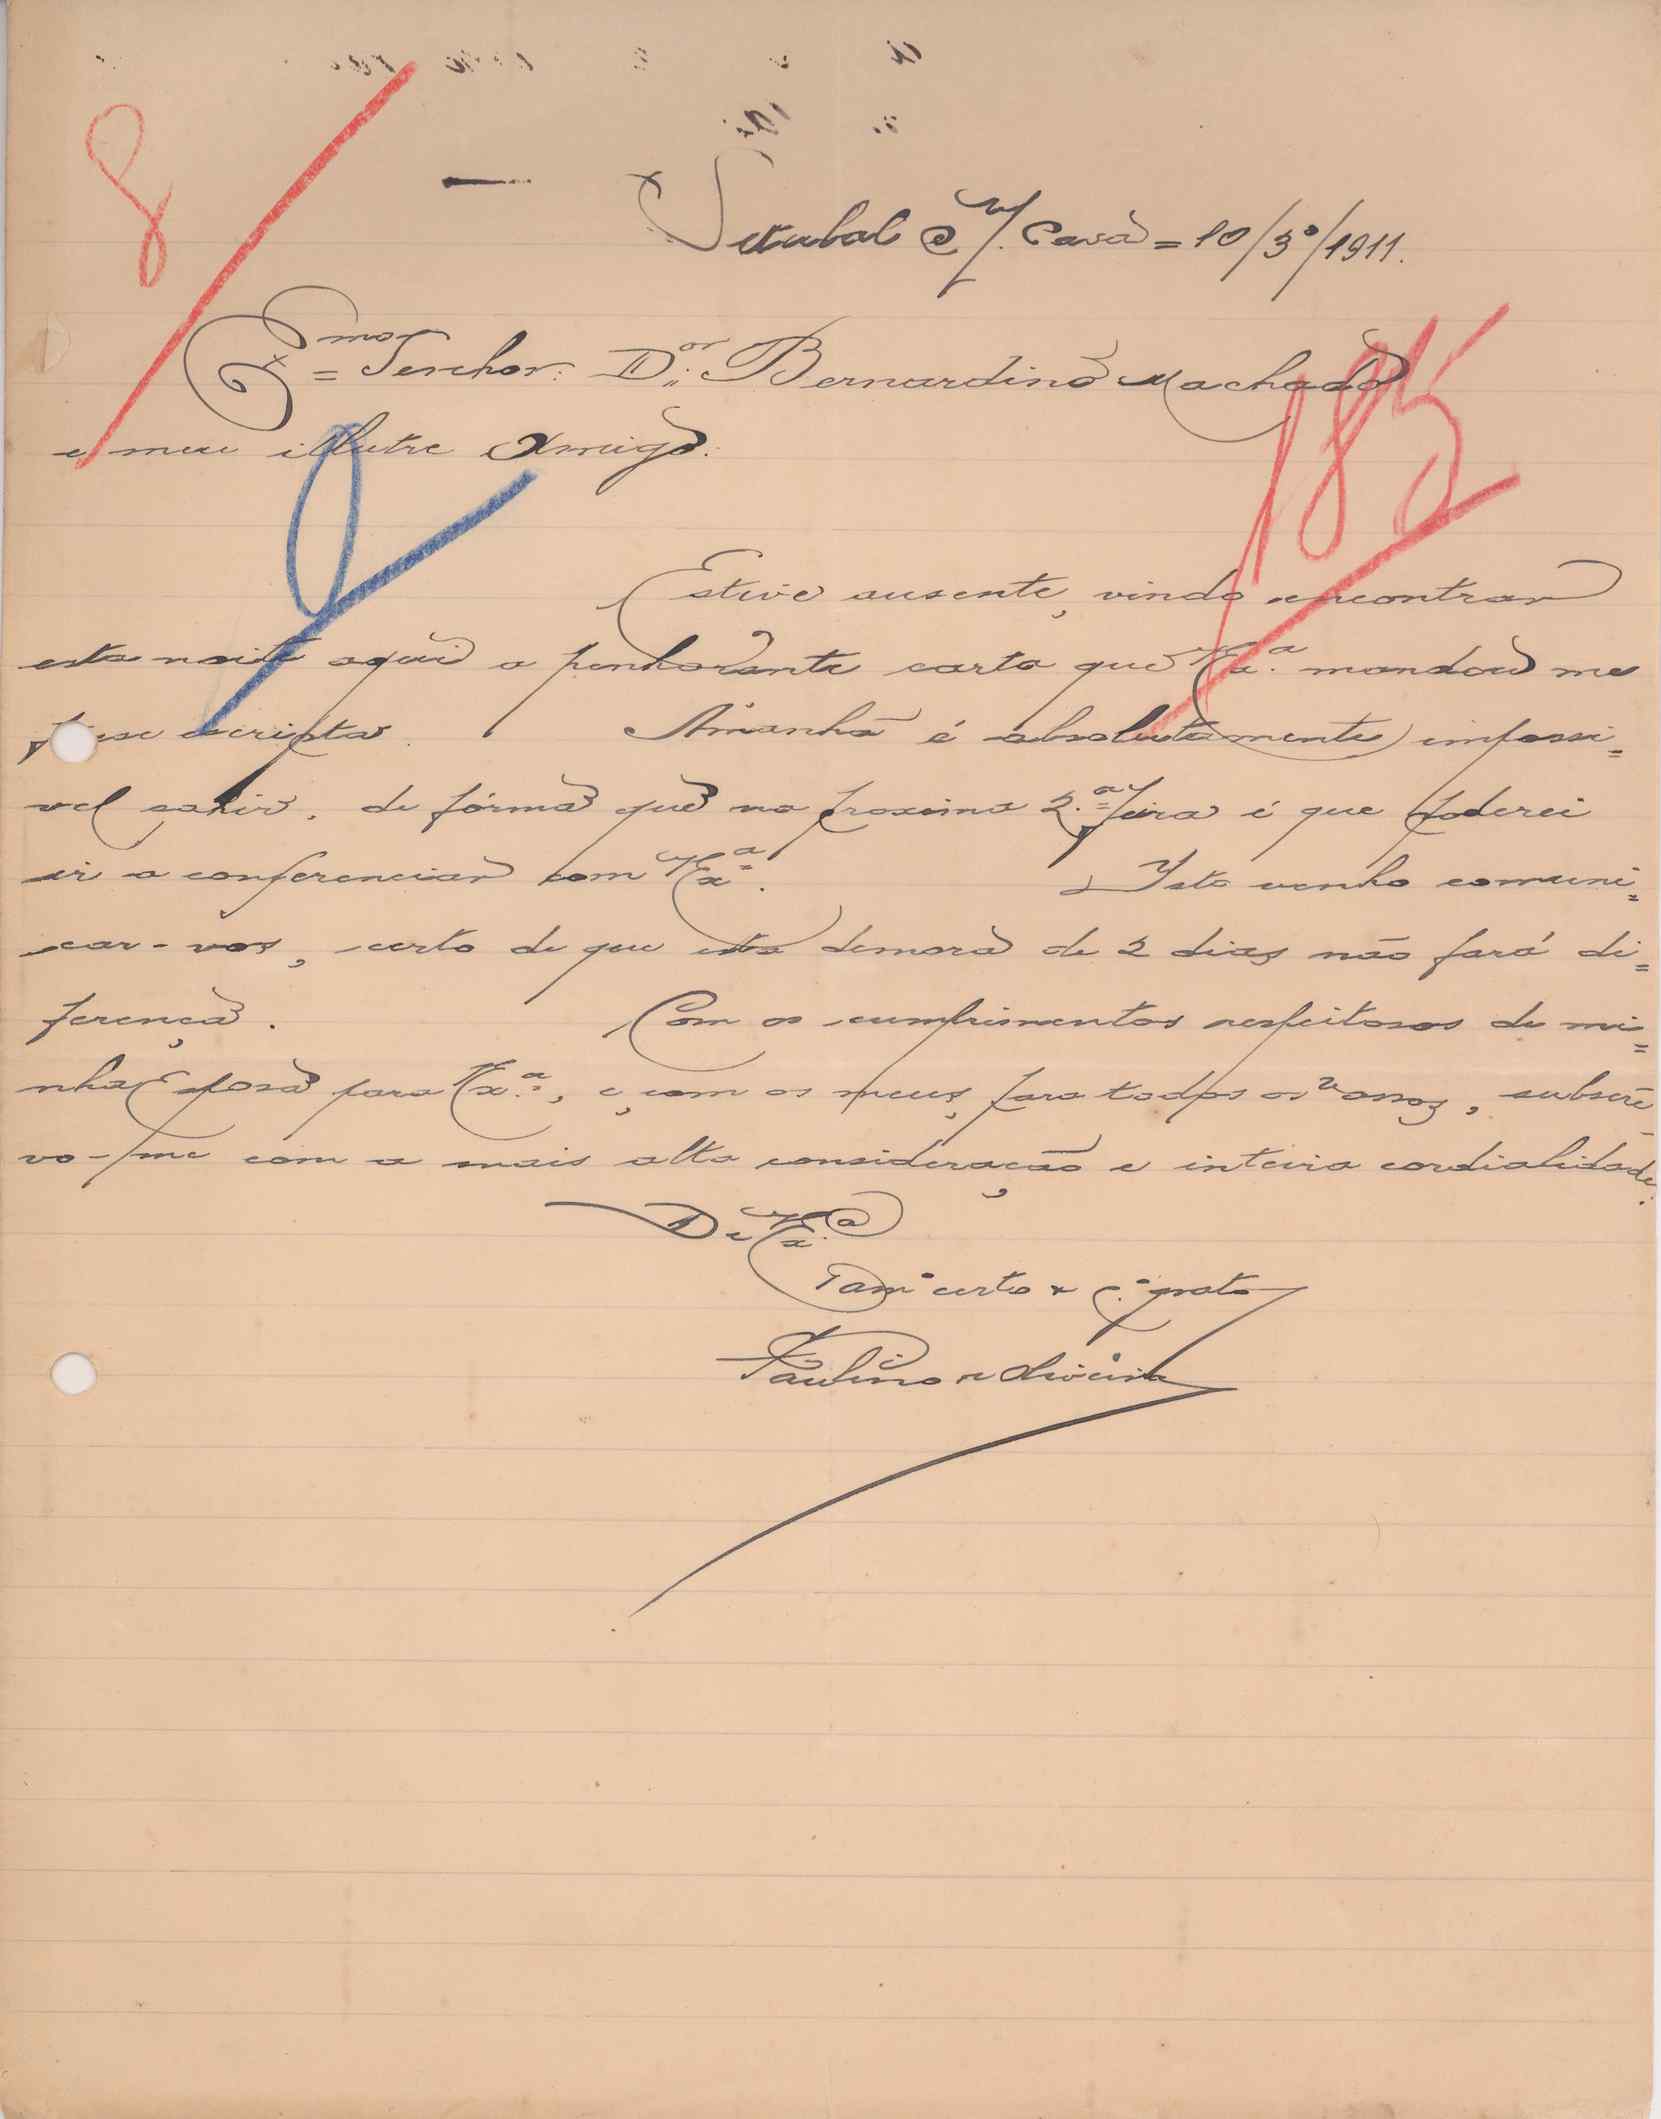 8
Setubal e v/. Casa = 10/3º/1911.
Exmo = Senhor: Dor: Bernardino Machado
185
e meu illutre Amigo:
Estive ausente, vindo encontrar
esta noite aqui a penhorante carta que V Exª. mandou me
fosse escripta. Amanhã é absolutamente impossi=
vel sahir, de fórma que na proxima 2.ª feira é que poderei
ir a conferenciar com V Exª. Isto venho comuni=
car-vos, certo de que esta demora de 2 dias não fará di=
ferença. Com os cumprimentos respeitosos de mi=
nha Esposa para V Exª., e, com os meus, para todos os vossos, subscre
vo-me com a mais alta consideração e inteira cordialidade.
De V Exª.
am.º certo e c.º grato
Paulino d'Oliveira